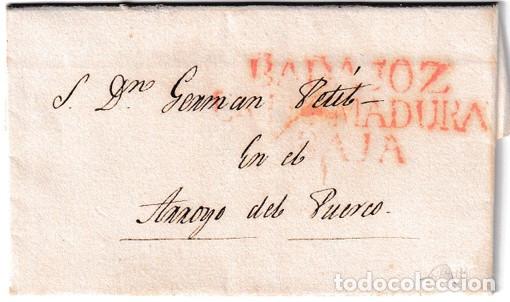 BADAJOZ
S. Dn. German Petit
EXTREMADURA
BAJA
En el
Arroyo del Puerco.
todocoleccion.net